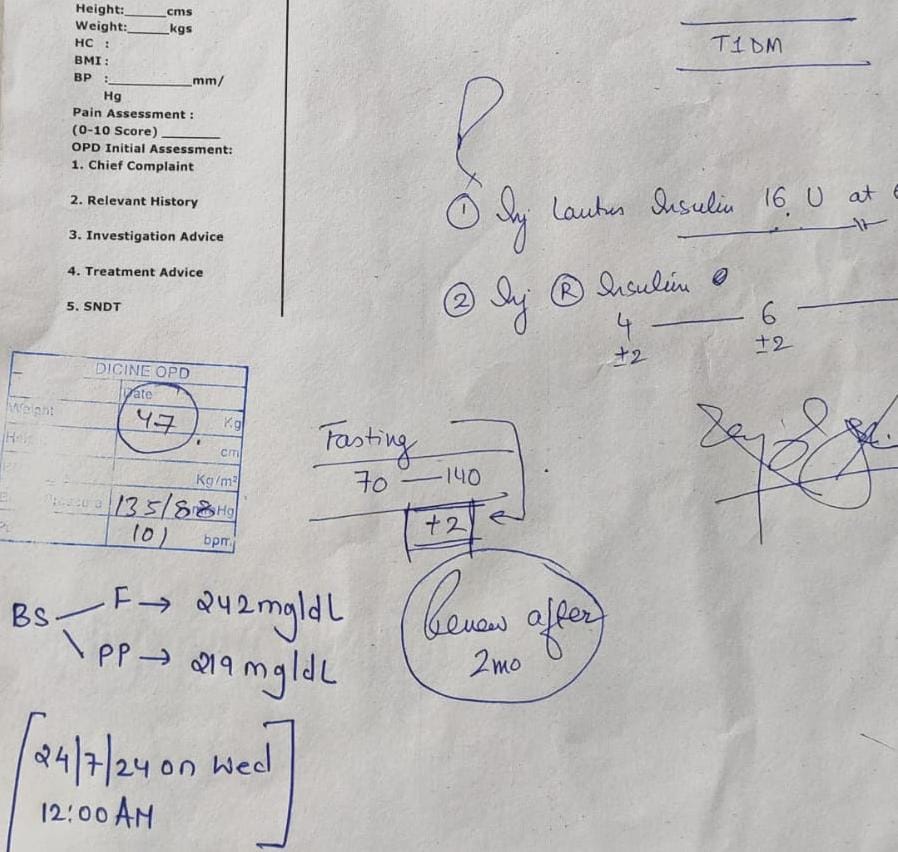 Height:______cms
Weight:______kgs
HC :
BMI :
BP :__________mm/
Hg
Pain Assessment :
(0-10 Score) _______
OPD Initial Assessment:
1. Chief Complaint
2. Relevant History
3. Investigation Advice
4. Treatment Advice
5. SNDT
T1DM
① Inj Lantus Insulin 16 U at
② Inj Ⓡ Insulin
4 — 6 —
±2 ±2
DICINE OPD
Date
Weight 47 Kg
cm
Kg/m²
135/88 Hg
101 bpm
Fasting
70 — 140
+2
BS F → 242mg/dL
PP → 219mg/dL
Review after
2mo
24/7/24 on Wed
12:00 AM